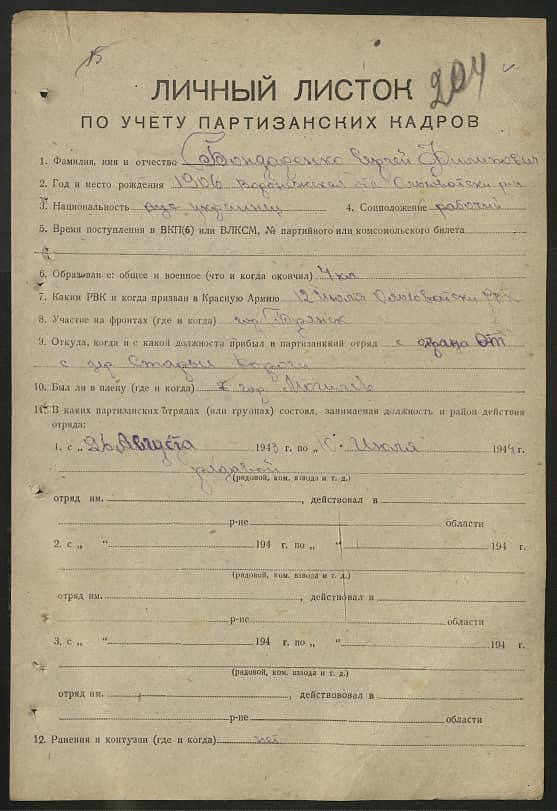 204
ЛИЧНЫЙ ЛИСТОК
ПО УЧЕТУ ПАРТИЗАНСКИХ КАДРОВ
1. Фамилия, имя и отчество Бондаренко Сергей Филипович
2. Год и место рождения 1906 Воронежская
3. Национальность украинец 4. Соцположение рабочий
5. Время поступления в ВКП(б) или ВЛКСМ, № партийного или комсомольского билета
6. Образование: общее и военное (что и когда окончил) 4 кл
7. Каким РВК и когда призван в Красную Армию 12 июля
8. Участие на фронтах (где и когда) гор. Брянск
9. Откуда, когда и с какой должности прибыл в партизанский отряд с
с гор Старые Дороги
10. Был ли в плену (где и когда) гор. Могилев
11. В каких партизанских отрядах (или группах) состоял, занимаемая должность и район действия
отряда:
1. с „26 Августа 1943 г. по „10 Июля 1944 г.
рядовой
(рядовой, ком. взвода и т. д.)
отряд им. , действовал в
р-не области
2. с „ “ 194 г. по „ “ 194 г.
(рядовой, ком. взвода и т. д.)
отряд им. , действовал в
р-не области
3. с „ “ 194 г. по „ “ 194 г.
(рядовой, ком. взвода и т. д.)
отряд им. , действововал в
р-не области
12. Ранения и контузии (где и когда) нет